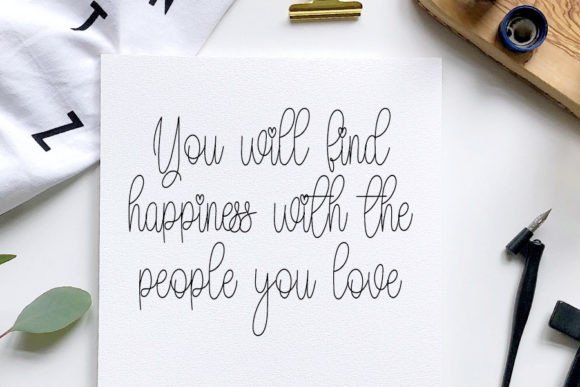 T
Z
You will find
happiness with the
people you love